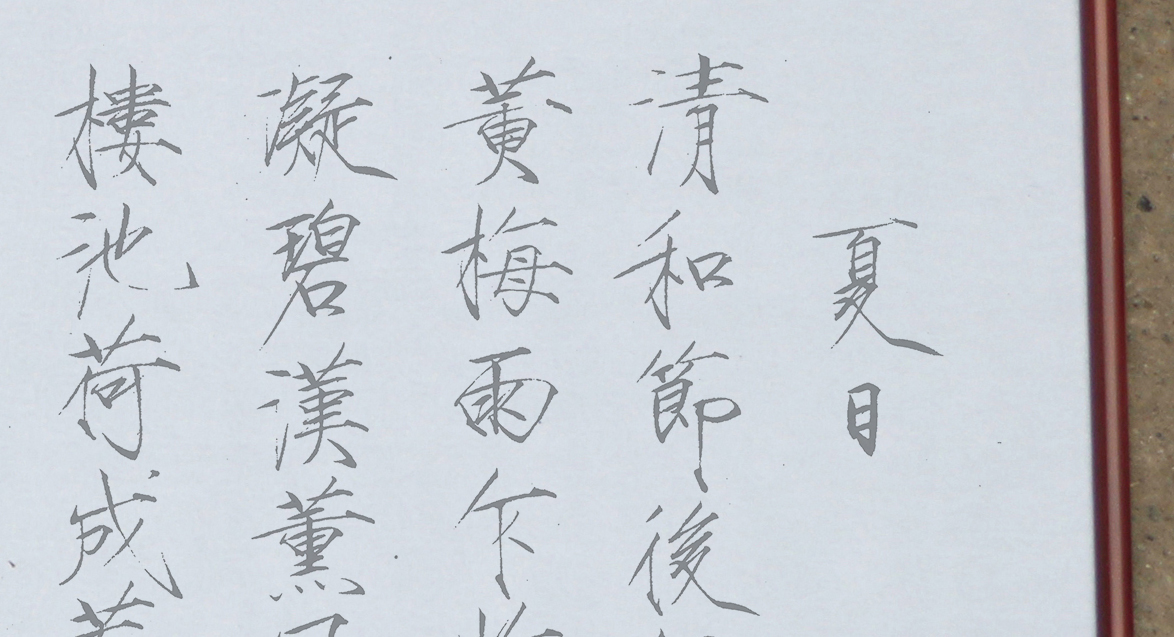 夏日
清和節後
黄梅雨乍
凝碧漢薰
樓池荷成